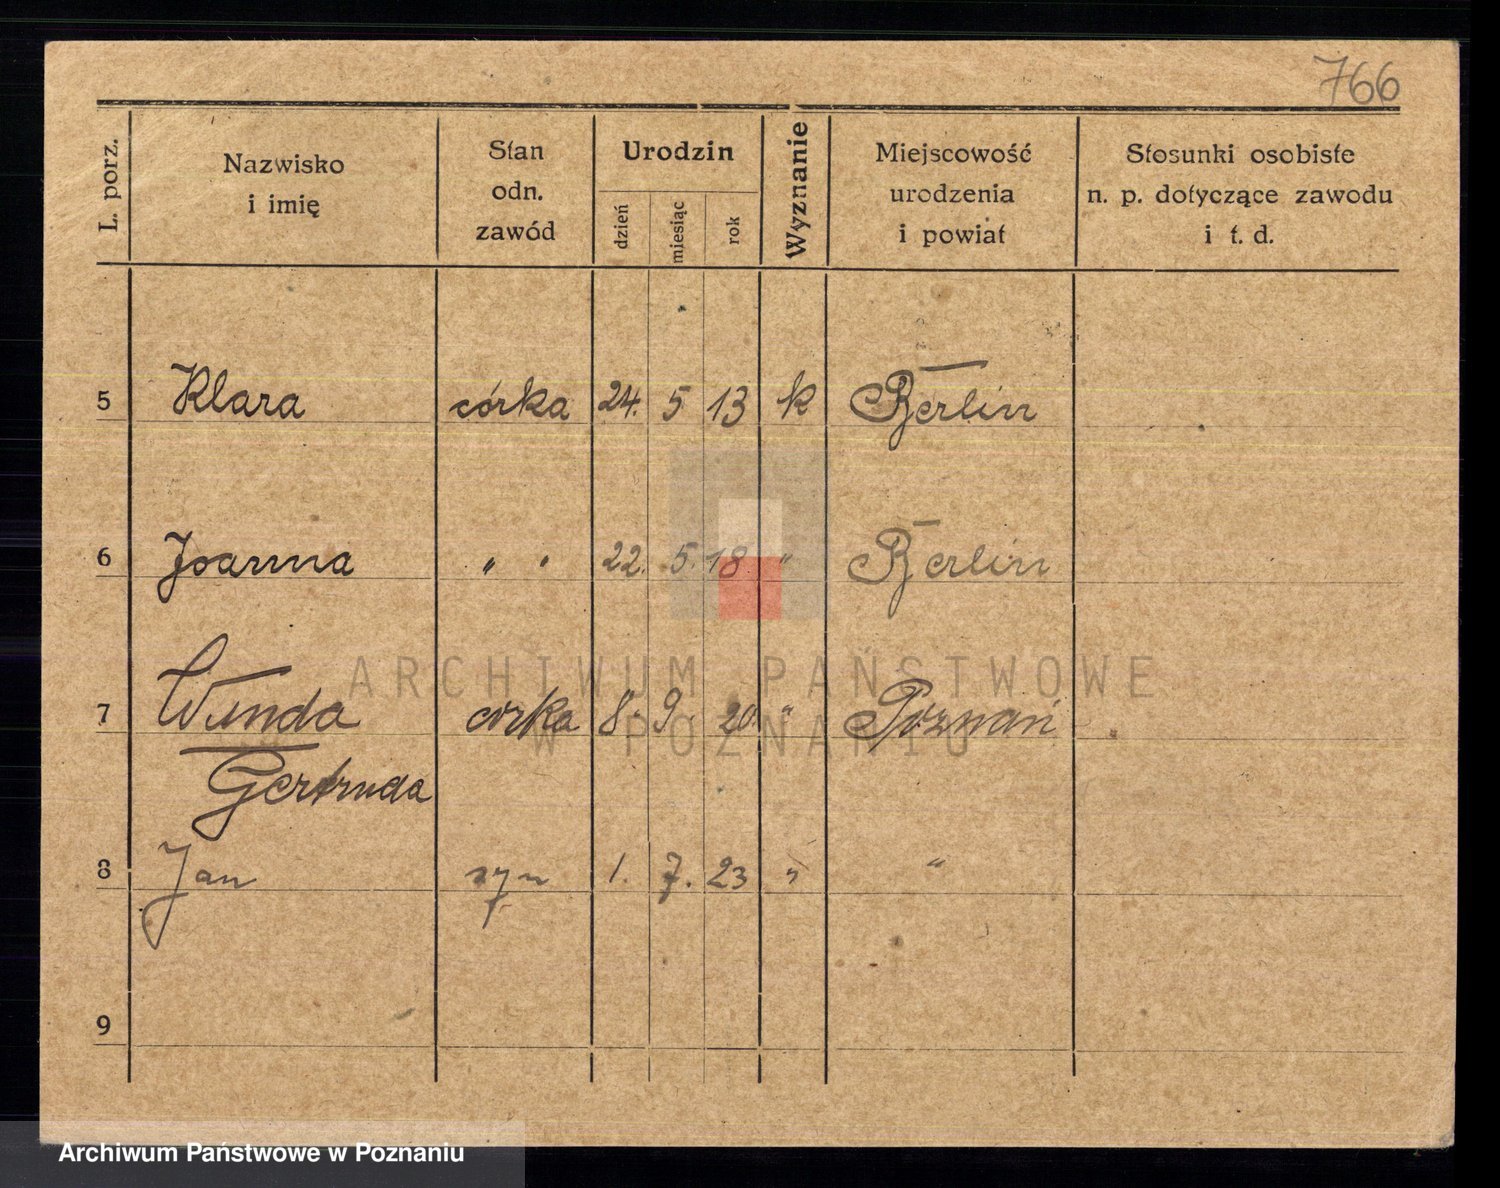 766
L. porz.
Nazwisko
i imię
Stan
odn.
zawód
Urodzin
dzień
miesiąc
rok
Wyznanie
Miejscowość
urodzenia
i powiat
Stosunki osobiste
n. p. dotyczące zawodu
i t. d.
5 Klara córka 24. 5 13 k Berlin
6 Joanna " " 22. 5. 18 " Berlin
7 Wanda córka 8. 9. 20 " Poznań
Gertruda
8 Jan syn 1. 7. 23 " "
9
ARCHIWUM PAŃSTWOWE
W POZNANIU
Archiwum Państwowe w Poznaniu